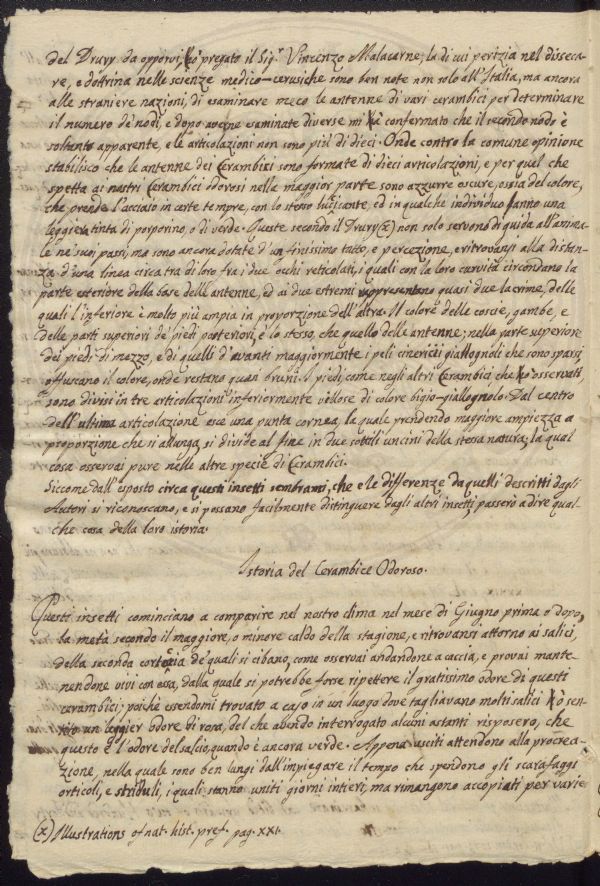 del Drury da opporvi, hò pregato il Sig.r Vincenzo Malacarne, la di cui perizia nel disseca-
re, e dottrina nelle scienze medico-cerusiche sono ben note non solo all'Italia, ma ancora
alle straniere nazioni, di esaminare meco le antenne di vari cerambici per determinare
il numero de' nodi, e dopo averne esaminate diverse mi hà confermato che il secondo nodo è
soltanto apparente, e le articolazioni non sono più di dieci. Onde contro la comune opinione
stabilisco che le antenne dei Cerambici sono formate di dieci articolazioni, e per quel che
spetta ai nostri Cerambici odorosi nella maggior parte sono azzurre oscure, ossia del colore,
che prende l'acciaio in certe tempre, con lo stesso luccicante, ed in qualche individuo hanno una
leggiera tinta di porporino, o di verde. Queste secondo il Drury (x) non solo servono di guida all'anima-
le ne' suoi passi, ma sono ancora dotate d'un finissimo tatto, e percezione, e ritrovansi alla distan-
za d'una linea circa tra di loro fra i due occhi reticolati, i quali con la loro curvità circondano la
parte esteriore della base dell'antenne, ed ai due estremi rappresentano quasi due lacrime, delle
quali l'inferiore è molto più ampia in proporzione dell'altra. Il colore delle coscie, gambe, e
delle parti superiori de' piedi posteriori, è lo stesso, che quello delle antenne; nella parte superiore
dei piedi di mezzo, e di quelli d'avanti maggiormente i peli cinericci giallognoli che sono sparsi
offuscano il colore, onde restano quasi bruni. I piedi, come negli altri Cerambici che hò osservati,
sono divisi in tre articolazioni inferiormente vellose di colore bigio-giallognolo. Dal centro
dell'ultima articolazione esce una punta cornea, la quale prendendo maggiore ampiezza a
proporzione che si allunga, si divide al fine in due sottili uncini della stessa natura, la qual
cosa osservai pure nelle altre specie di Cerambici.
Siccome dall'esposto circa questi insetti sembrami, che e le differenze da quelli descritti dagli
Autori si riconoscano, e si possano facilmente distinguere dagli altri insetti, passerò a dire qual-
che cosa della loro istoria.
Istoria del Cerambice Odoroso.
Questi insetti cominciano a comparire nel nostro clima nel mese di Giugno prima o dopo
la metà secondo il maggiore, o minore caldo della stagione, e ritrovansi attorno ai salici,
della seconda corteccia de' quali si cibano, come osservai andandone a caccia, e provai mante-
nendone vivi con essa, dalla quale si potrebbe forse ripettere il gratissimo odore di questi
cerambici; poichè essendomi trovato a caso in un luogo dove tagliavano molti salici hò sen-
tito un leggier odore di rosa, del che avendo interrogato alcuni astanti risposero, che
questo è l'odore del salcio, quando è ancora verde. Appena usciti attendono alla procrea-
zione, nella quale sono ben lungi dall'impiegare il tempo che spendono gli scarafaggi
orticoli, e striduli, i quali stanno uniti giorni intieri, ma rimangono accopiati per varie
(x) Illustrations of nat. hist. pref. pag. XXI.